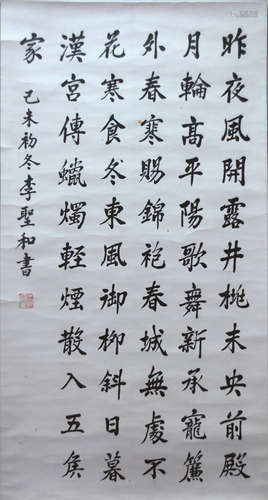 昨夜風開露井桃未央前殿
月輪高平陽歌舞新承寵簾
外春寒賜錦袍春城無處不
花寒食冬東風御柳斜日暮
漢宮傳蠟燭輕煙散入五矦
家
己未初冬李聖和書